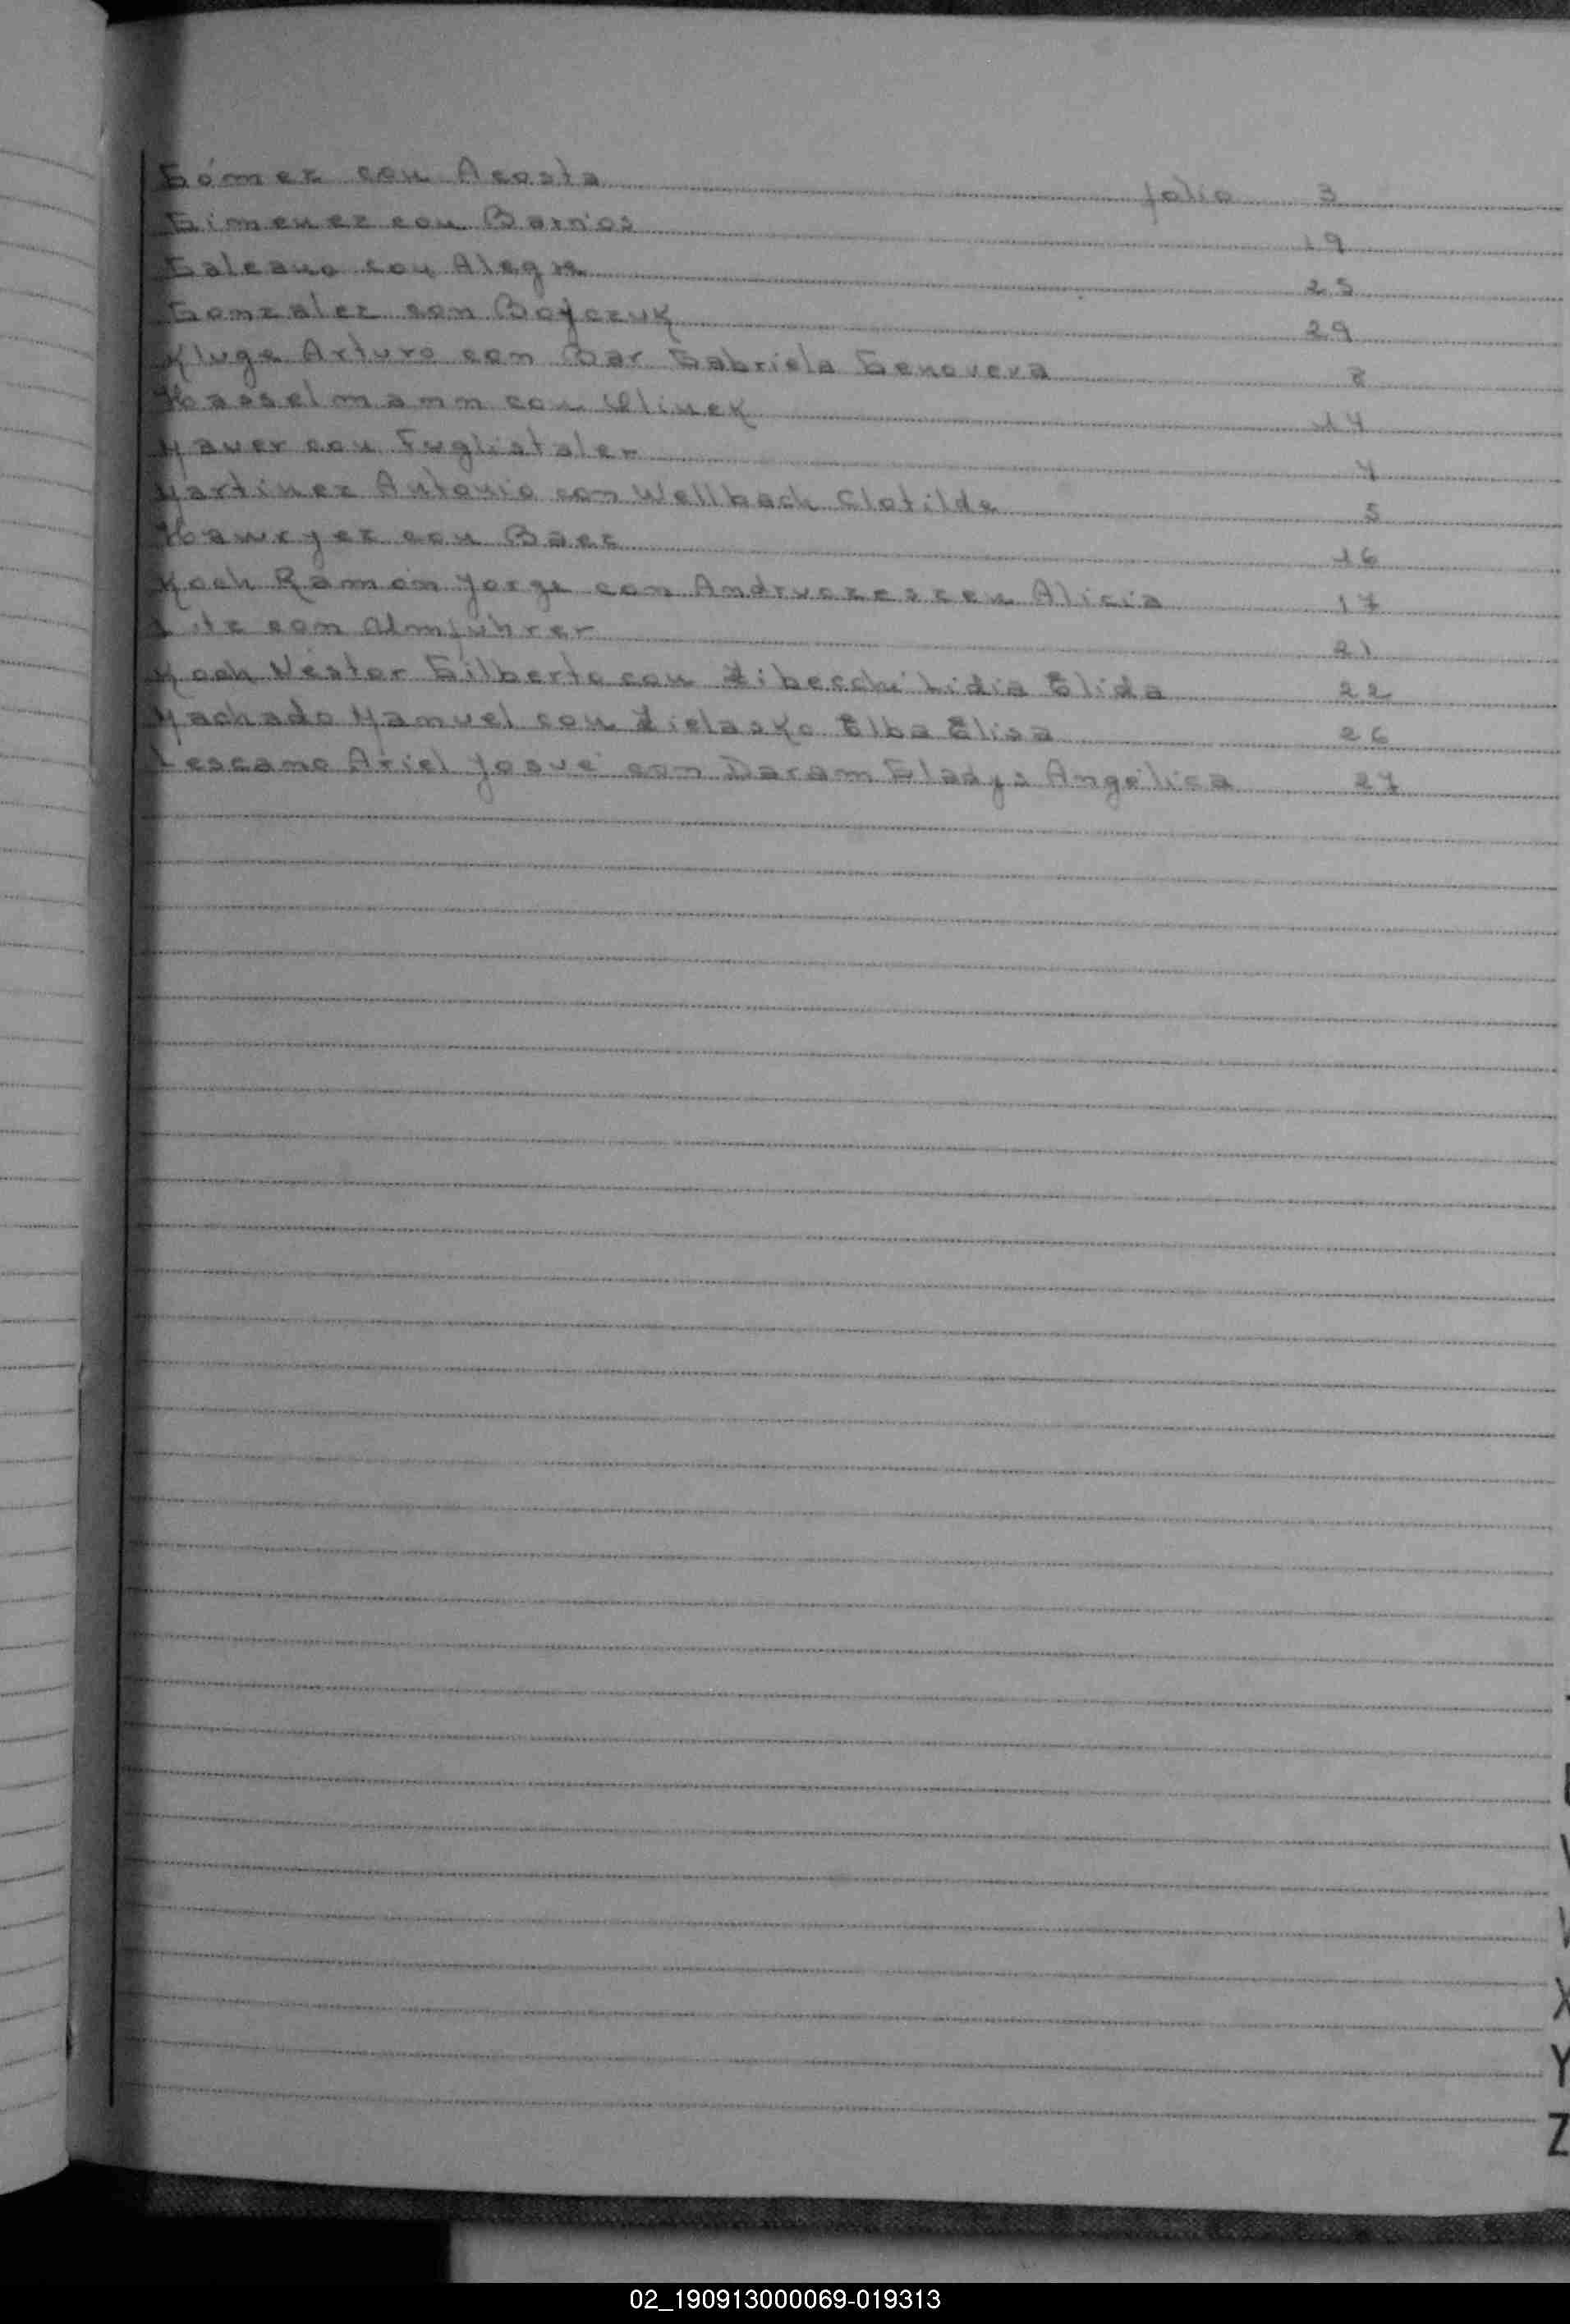 Gómez con Acosta folio 3
Gimenez con Barrios 19
Galeano con Alegre 25
Gonzalez con Boyczuk 29
Kluge Arturo con Bar Gabriela Genoveva 8
Hasselmann con Olinek 14
Mauer con Fuglistaler 4
Martinez Antonio con Wellbach Clotilde 5
con Baez 16
Koch Ramón Jorge con Alicia 17
con 21
Koch Néstor Gilberto con Zibecchi Lidia Elida 22
Machado Manuel con Zielasko Elba Elisa 26
Lescano Ariel Josué con Daram Gladys Angélica 27
X
Y
Z
02_190913000069-019313